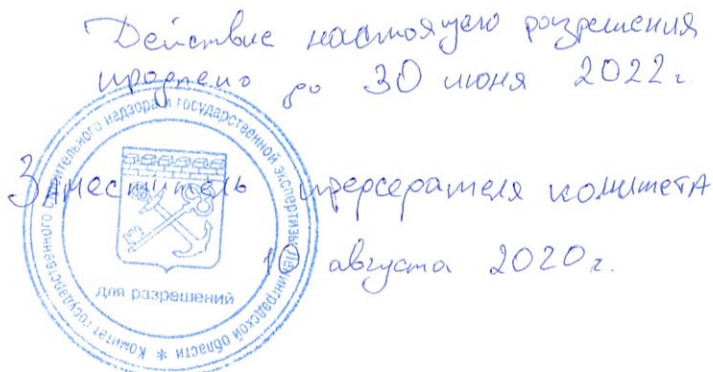 Действие настоящего разрешения
продлено до 30 июня 2022г.
Заместитель председателя комитета
10 августа 2020г.
Комитет государственного строительного надзора и государственной экспертизы Ленинградской области *
для разрешений